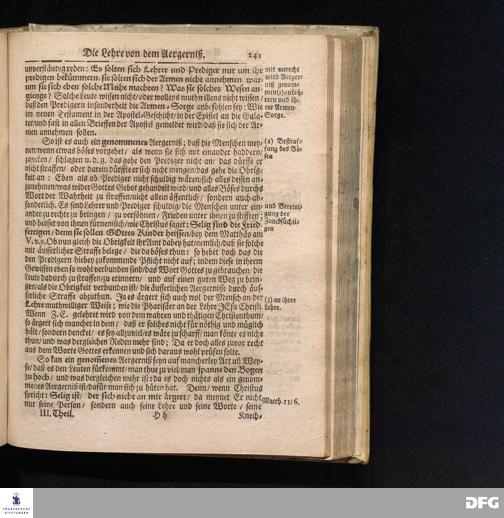 Die Lehre von dem Aergerniß. 241
unverständig reden: Es solten sich Lehrer und Prediger nur um ihr
predigen bekümmern/ sie solten sich der Armen nicht annehmen/ warum
um sie sich eben solche Mühe machten? Was sie solches Wesen an-
gienge? Solche Leute wissen nicht/ oder wollens muthwillens nicht wissen/
daß den Predigern insonderheit die Armen-Sorge anbefohlen sey: Wie
im neuen Testament in der Apostel-Geschicht/ in der Epistel an die Gala-
ter/ und fast in allen Brieffen der Apostel gemeldet wird/ daß sie sich der Ar-
men annehmen sollen.
So ist es auch ein genommenes Aergerniß; daß die Menschen mey-
nen/ wenn etwas böses vorgehet/ als wenn sie sich mit einander haddern/
zancken/ schlagen u. d. g. das gehe den Prediger nicht an/ das dürffe er
nicht straffen/ oder darein dürffte er sich nicht mengen/ das gehe die Obrig-
keit an: Eben als ob Prediger nicht schuldig wären/ sich alles dessen an-
zunehmen/ was wider Gottes Gebot gehandelt wird/ und alles Böses durchs
Wort der Wahrheit zu straffen/ nicht allein öffentlich/ sondern auch ab-
sonderlich. Es sind Lehrer und Prediger schuldig/ die Menschen unter ein-
ander zu rechte zu bringen/ zu versöhnen/ Frieden unter ihnen zu stifften;
und heisset von ihnen fürnemlich/ wie Christus saget: Selig sind die Fried-
fertigen/ denn sie sollen GOttes Kinder heissen/ bey dem Matthäo am
V. v. 9. Ob nun gleich die Obrigkeit ihr Amt dabey hat/ nemlich/ daß sie solche
mit äusserlicher Straffe belege/ die da böses thun: so hebet doch das die
den Predigern hiebey zukommende Pflicht nicht auf; indem diese in ihrem
Gewissen eben so wohl verbunden sind/ das Wort Gottes zu gebrauchen/ die
Leute dadurch zu straffen/ zu erinnern/ und auf einen guten Weg zu brin-
gen/ als die Obrigkeit verbunden ist/ die äusserlichen Aergernisse durch äus-
serliche Straffe abzuthun. Ja es ärgert sich auch wol der Mensch an der
Lehre muthwilliger Weise; wie die Pharisäer an der Lehre JEsu Christi.
Wenn Z. E. gelehret wird von dem wahren und thätigen Christenthum/
so ärgert sich mancher in dem/ daß er solches nicht für nöthig und müglich
hält/ sondern dencket/ es sey allzuviel/ es wäre zu scharff/ man könte es nicht
thun/ und was dergleichen Reden mehr sind; Da er doch alles zuvor recht
aus dem Worte Gottes erkennen und sich daraus wohl prüfen solte.
So kan ein genommenes Aergerniß seyn auf mancherley Art uñ Wey-
se/ daß es den Leuten fürkommt/ man thue zu viel/ man spanne den Bogen
zu hoch/ und was dergleichen mehr ist: da es doch nichts als ein genom-
menes Aergerniß ist/ dafür man sich zu hüten hat. Denn/ wenn Christus
spricht: Selig ist/ der sich nicht an mir ärgert/ da meynet Er nicht
nur seine Person/ sondern auch seine Lehre und seine Worte/ seine
III. Theil. H h Knech-
mit unrecht
wird Aerger-
niß genom-
men
rern und ih-
rer Armen-
Sorge.
(2) Bestraf-
fung des Bö-
sen
und Vereini-
gung der
Zanksüchti-
gen
(3) an ihrer
Lehre.
Matth. 11/6.
FRANCKESCHE
STIFTUNGEN
DFG